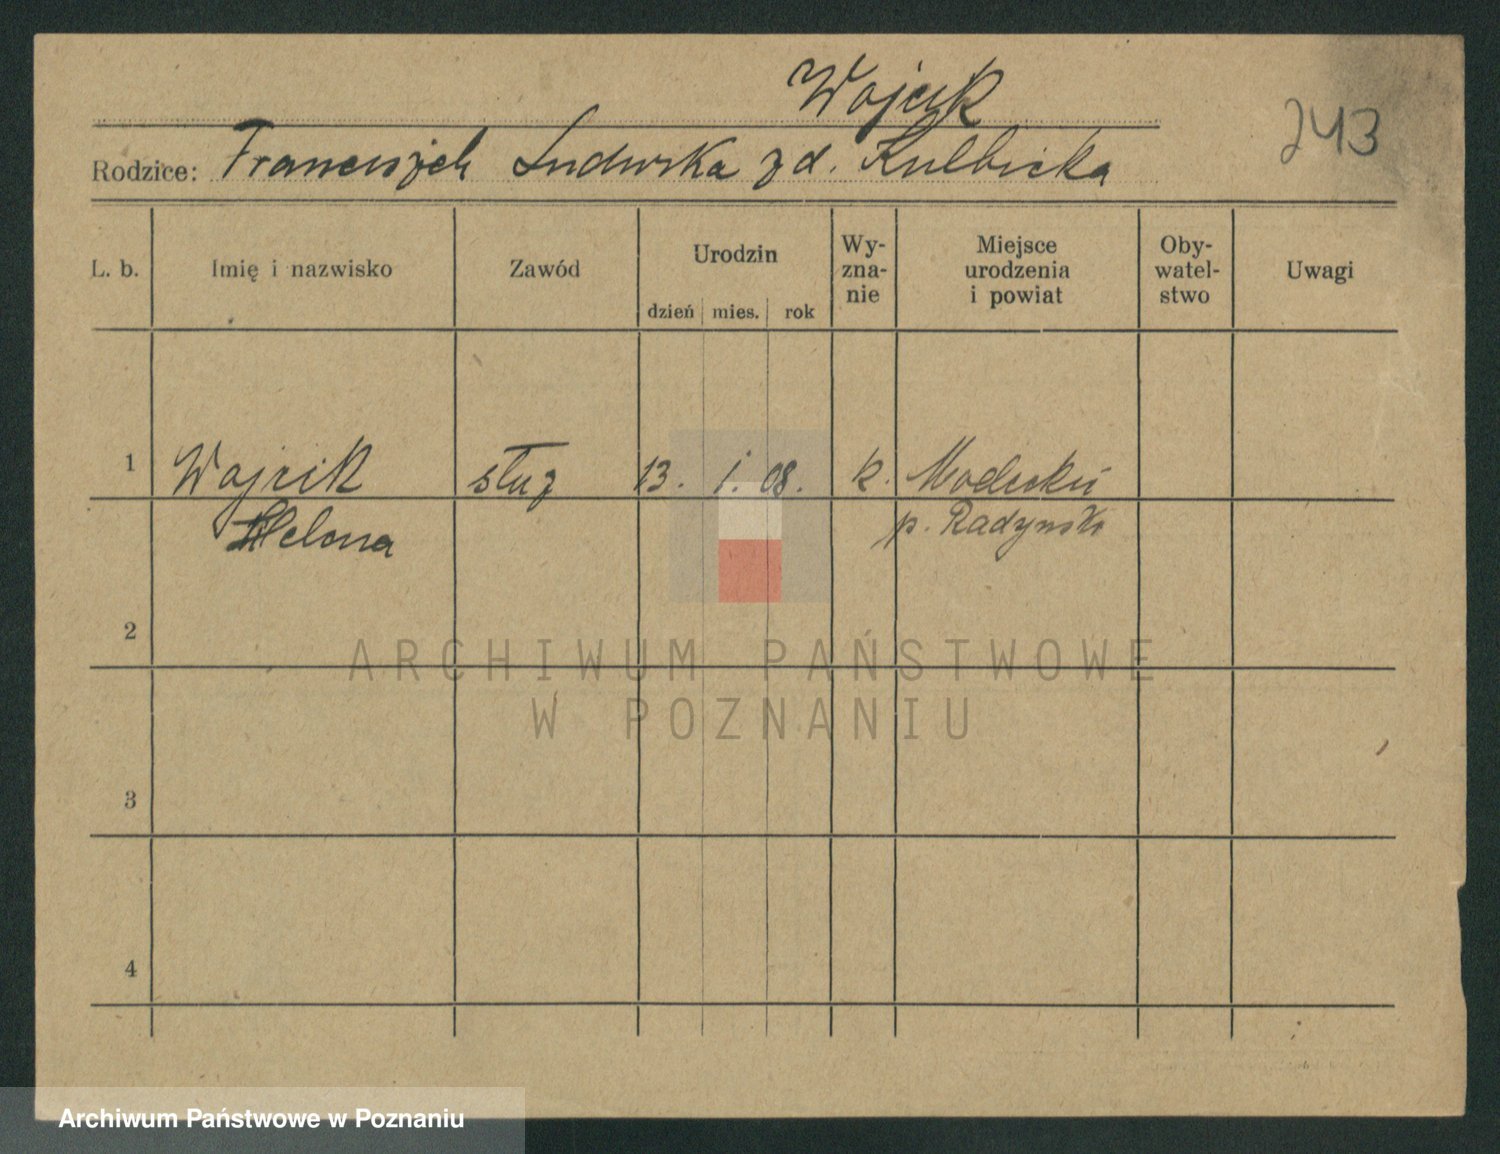 Wojcik
243
Rodzice: Franciszek Ludwika z d. Kulbicka
L. b. Imię i nazwisko Zawód Urodzin dzień mies. rok Wy-zna-nie Miejsce urodzenia i powiat Oby-watel-stwo Uwagi
1 Wojcik służ 13. 1. 08. k.
Helena p. Radzyński
2
ARCHIWUM PAŃSTWOWE
W POZNANIU
3
4
Archiwum Państwowe w Poznaniu